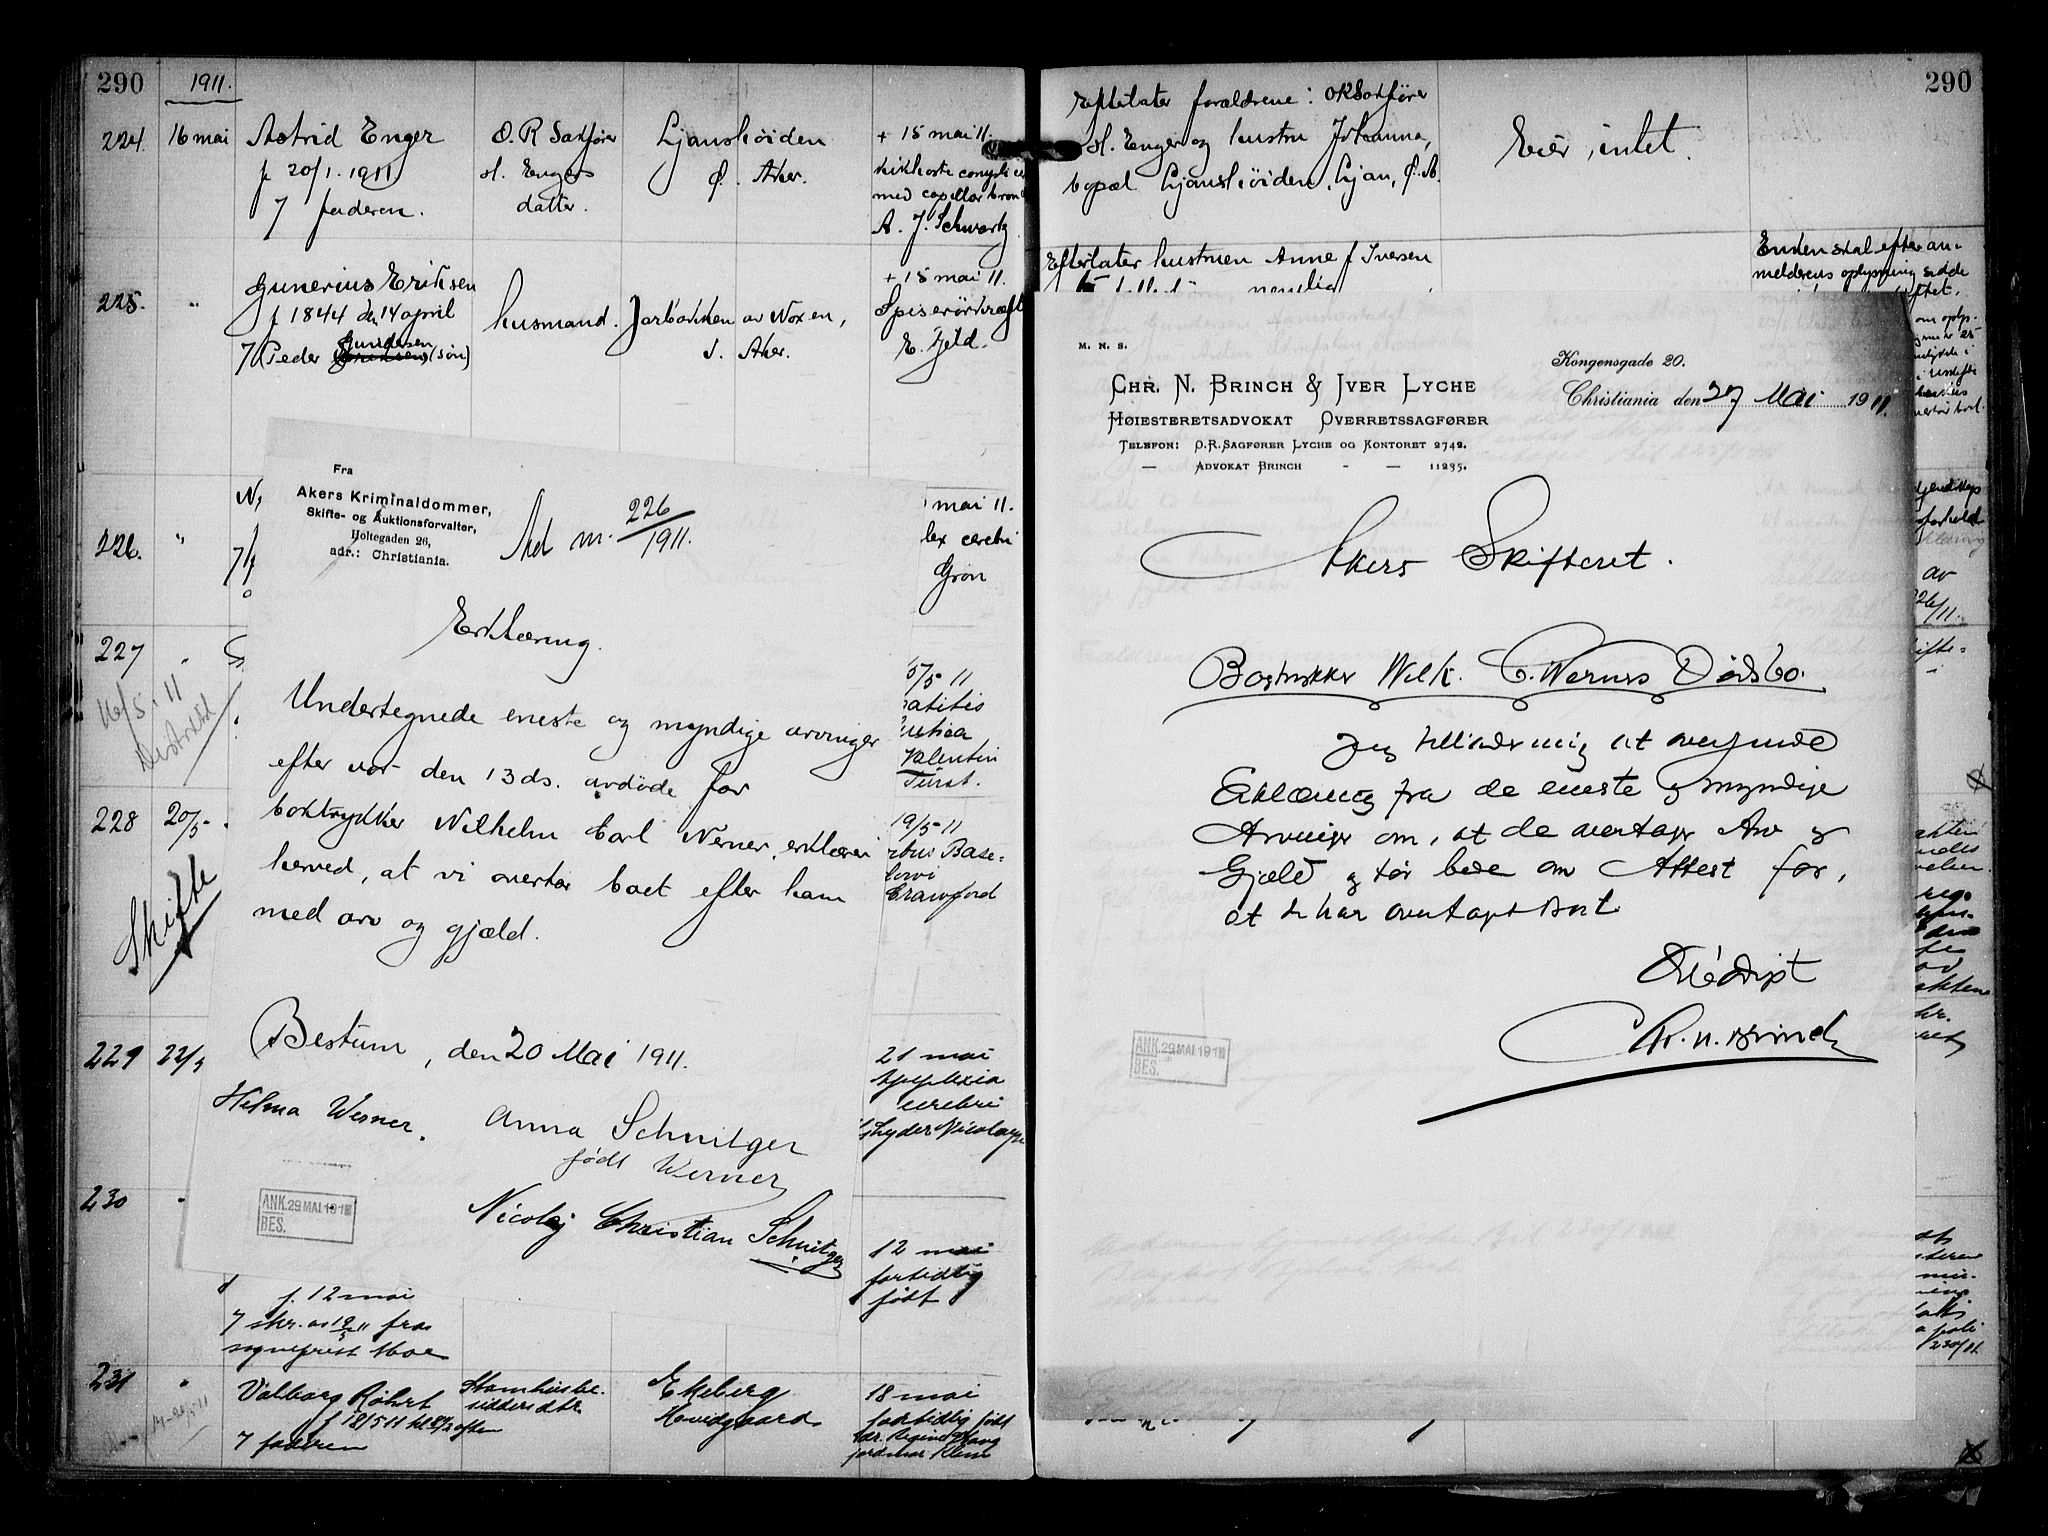 290
1911.
224.
16 mai
Astrid Enger
f 20/1. 1911
7 faderen.
O. R Sakfører
sl. Engers
datter.
Ljanshöiden
Ø. Aker.
+ 15 mai 11.
kikhoste
med capillar
A. J. Schwartz
225.
"
Gunerius Eriksen
f 1844 den 14 april
Gundersen
7 Peder (søn)
husmand.
Jarbakken av Voxen,
V. Aker.
+ 15 mai 11.
Spiserörkræft
E. Fjeld.
226.
"
mai 11.
lex cerebri
Grön
Fra
Akers Kriminaldommer,
Skifte- og Auktionsforvalter,
Holtegaden 26,
adr.: Christiania.
Ad nr. 226/1911.
Erklæring.
Undertegnede eneste og myndige arvinger
efter vor den 13 ds. avdøde far
boktrykker Wilhelm Carl Werner, erklærer
herved, at vi overtar boet efter ham
med arv og gjæld.
Bestum, den 20 Mai 1911.
Helma Werner.
Anna Schnitger
født Werner
Nicolaj Christian Schnitger
ANK. 29 MAI. 191
BES.
227
16/5 11
Distriktet
5/5 11
Valentin
Fürst.
228
20/5
Skifte
19/5-11
Base=
dowi
Crawford
229
22/5
21 mai
Apoplexia
cerebri
Lyder Nicolaysen
230
"
f. 12 mai
7 skr. av 19/5 11 fra
sogneprest Moe
12 mai
fortidlig
født
231
"
Valborg Røhrt
7 faderen
Stamhusbe-
sidders dtr.
Ekeberg
Hovedgaard
18 mai
fortidlig født
jordmor Klem
290
Efterlater forældrene: ORSakfører
sl. Enger og hustru Johanna,
bopæl Ljanshöiden, Ljan, Ø. A.
Eier intet.
Efterlater hustruen Anne f Iversen
Enden skal efter an-
melderens oplysning sidde
M. N. S.
Chr. N. Brinch & Iver Lyche
Høiesteretsadvokat Overretssagfører
Telefon: O.R. Sagfører Lyche og Kontoret 2742.
— Advokat Brinch - — 11235.
Kongensgade 20.
Christiania den 27 Mai 1911.
Akers Skifteret.
Bogtrykker Wilh. C. Werners Dødsbo.
Jeg tillader mig at oversende
Erklæring fra de eneste og myndige
Arvinger om, at de overtager Arv og
Gjæld og tør bede om Attest for,
at de har overtaget Boet.
Ærbødigst
Chr. N. Brinch
ANK. 29 MAI. 191
BES.
av
226/11.
230/11.